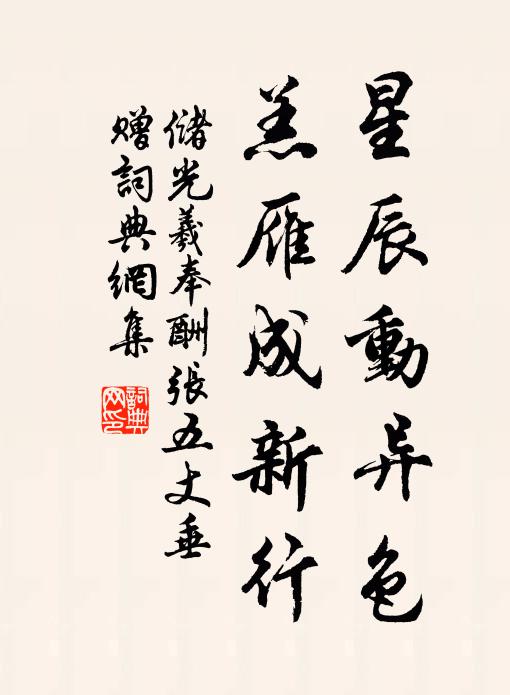 星辰動异色
羔雁成新行
儲光羲奉酬張五丈垂
贈詞典網集
詞典
网印